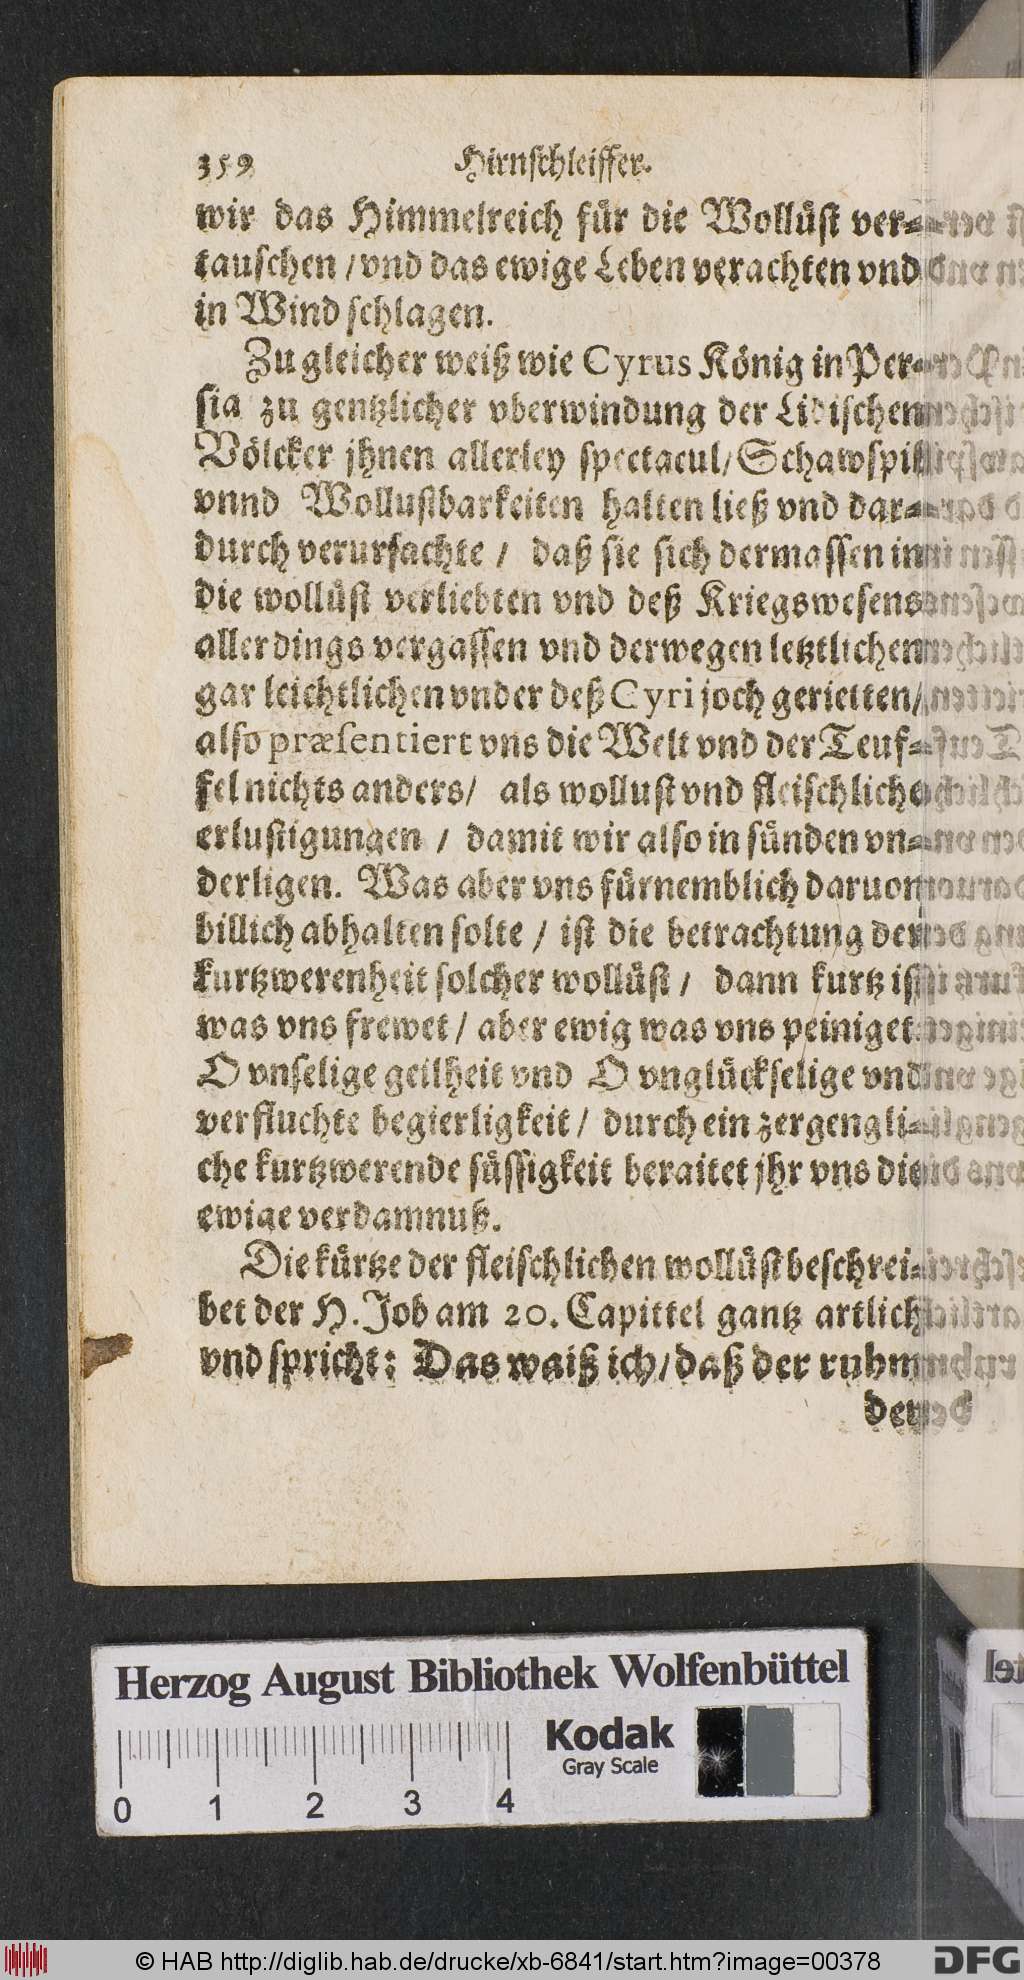 359 Hirnschleiffer.
wir das Himmelreich für die Wollüst ver-
tauschen / vnd das ewige Leben verachten vnd
in Wind schlagen.
Zu gleicher weiß wie Cyrus König in Per-
sia zu gentzlicher vberwindung der Lidischen
Völcker jhnen allerley spectacul / Schawspil
vnnd Wollustbarkeiten halten ließ vnd dar-
durch verursachte / daß sie sich dermassen in
die wollüst verliebten vnd deß Kriegswesens
allerdings vergassen vnd derwegen letztlichen
gar leichtlichen vnder deß Cyri joch gerietten /
also præsentiert vns die Welt vnd der Teuf-
fel nichts anders / als wollust vnd fleischliche
erlustigungen / damit wir also in sünden vn-
derligen. Was aber vns fürnemblich daruon
billich abhalten solte / ist die betrachtung der
kurtzwerenheit solcher wollüst / dann kurtz ist
was vns frewet / aber ewig was vns peiniget.
O vnselige geilheit vnd O vnglückselige vnd
verfluchte begierligkeit / durch ein zergengli-
che kurtzwerende süssigkeit beraitet jhr vns die
ewige verdamnuß.
Die kürtze der fleischlichen wollüst beschrei-
bet der H. Job am 20. Capittel gantz artlich
vnd spricht: Das waiß ich / daß der ruhm
der
Herzog August Bibliothek Wolfenbüttel
Kodak
Gray Scale
0 1 2 3 4
© HAB http://diglib.hab.de/drucke/xb-6841/start.htm?image=00378
DFG